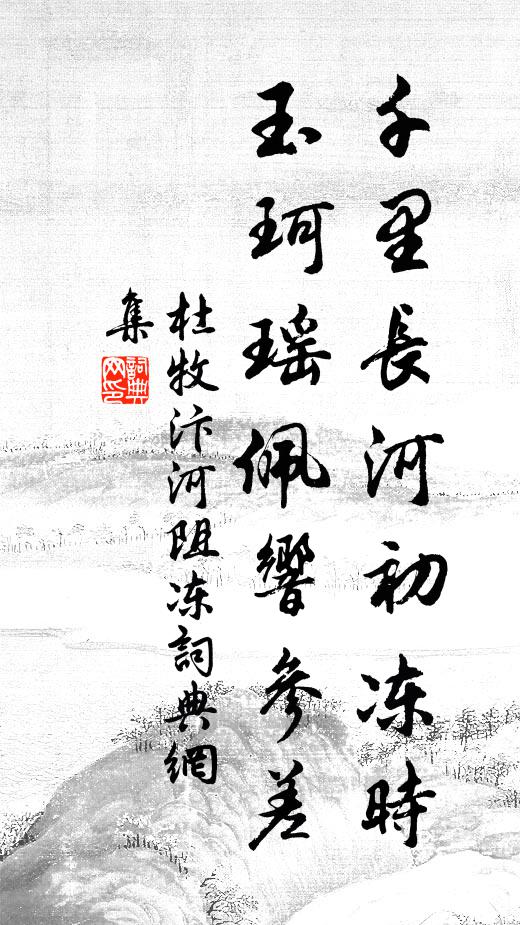 千里長河初冻時
玉珂瑶佩響參差
杜牧汴河阻冻詞典網
集
詞典网印